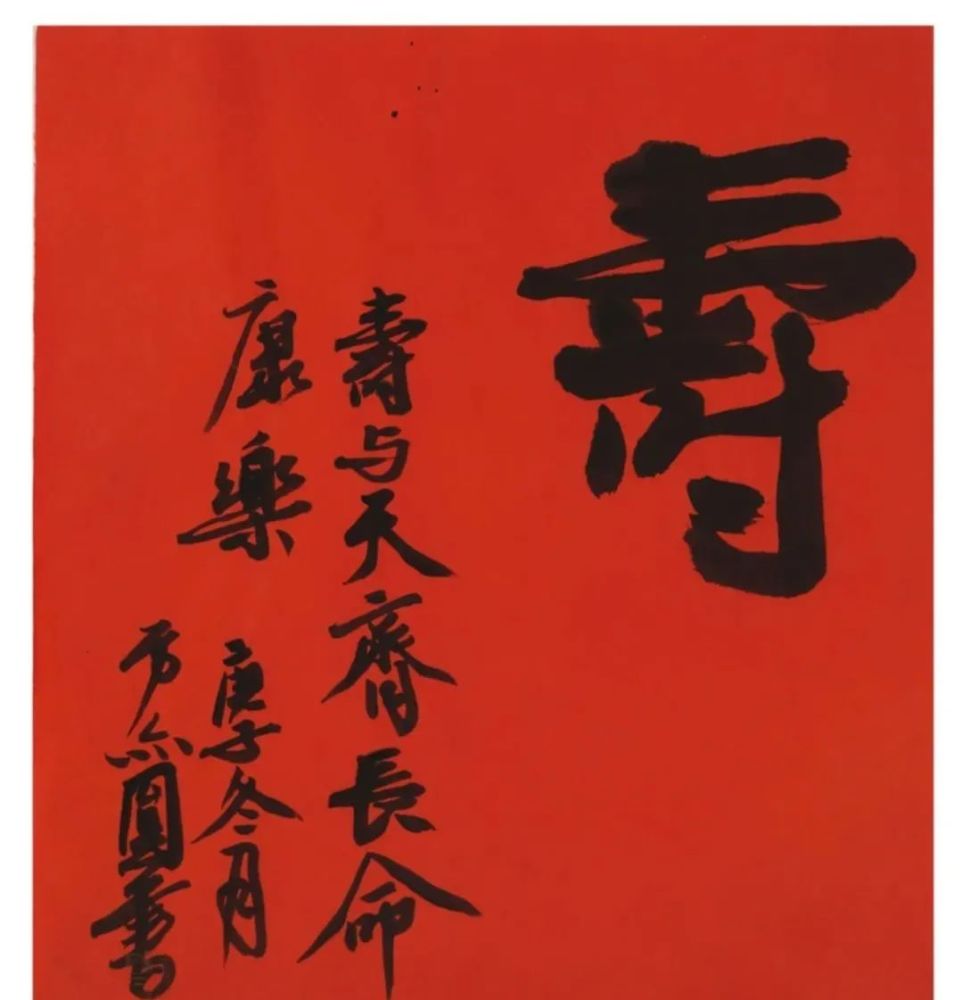 壽
壽与天齊長命
康樂
庚子冬月
圓書